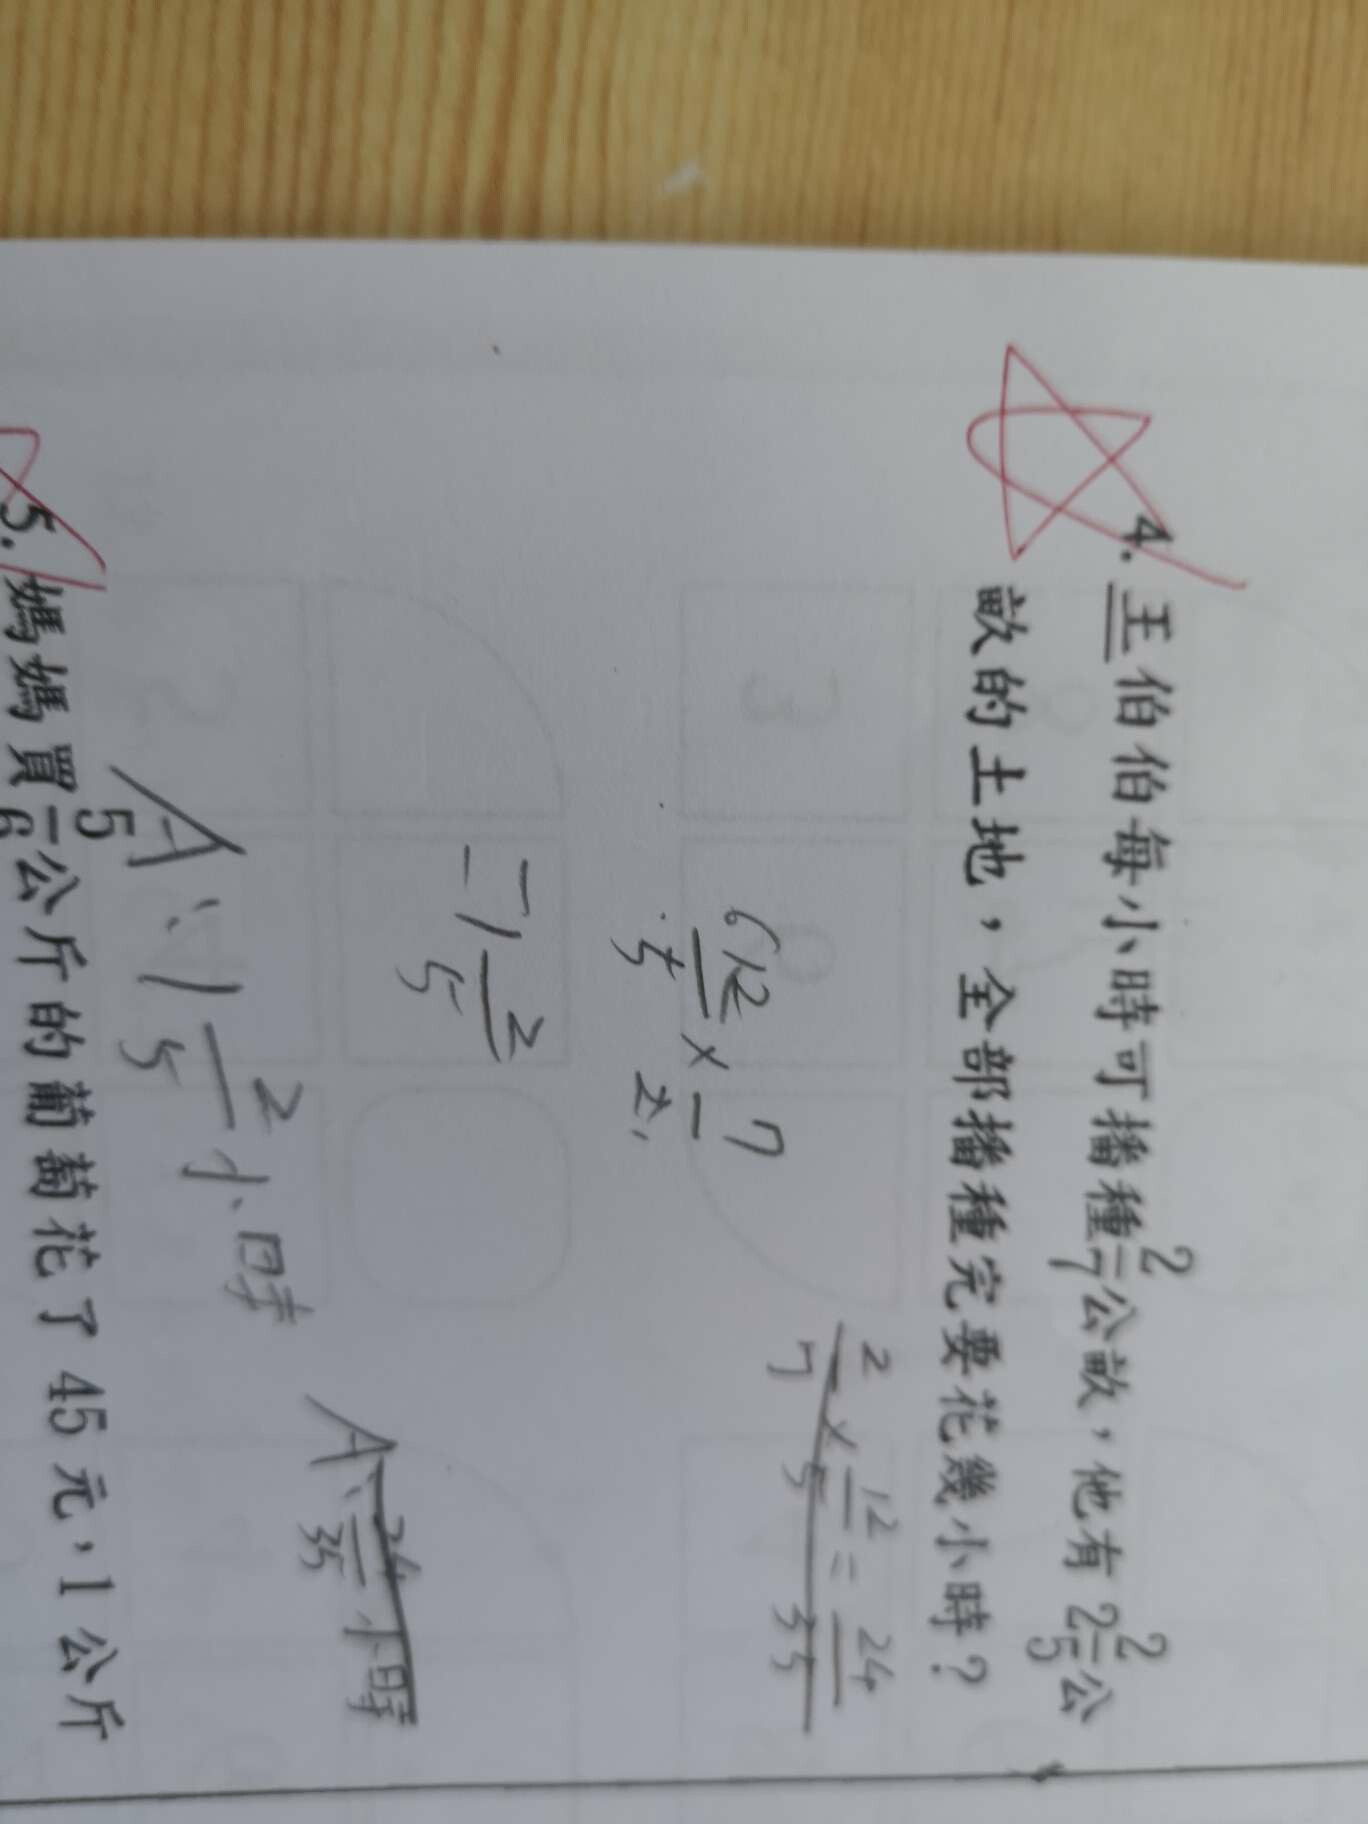 4. 王伯伯每小時可播種2/7公畝，他有2 2/5公
畝的土地，全部播種完要花幾小時？
2/7 × 12/5 = 24/35
6 12/5 × 7/2 1
= 1 2/5
A: 24/35 小時
A: 1 2/5 小時
5. 媽媽買5/6公斤的葡萄花了 45 元，1 公斤